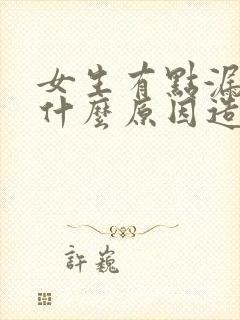 女生有點漏
什麼原因造
許巍